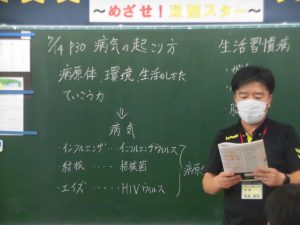 ～めざせ！
7/4 P30 病気の起こり方
病原体 環境 生活のしかた
ていこう力
⇓
病気
・インフルエンザ・・・インフルエンザウィルス
・結核 ・・・・結核菌
・エイズ ・・・・・HIVウィルス
病原
生活習慣病